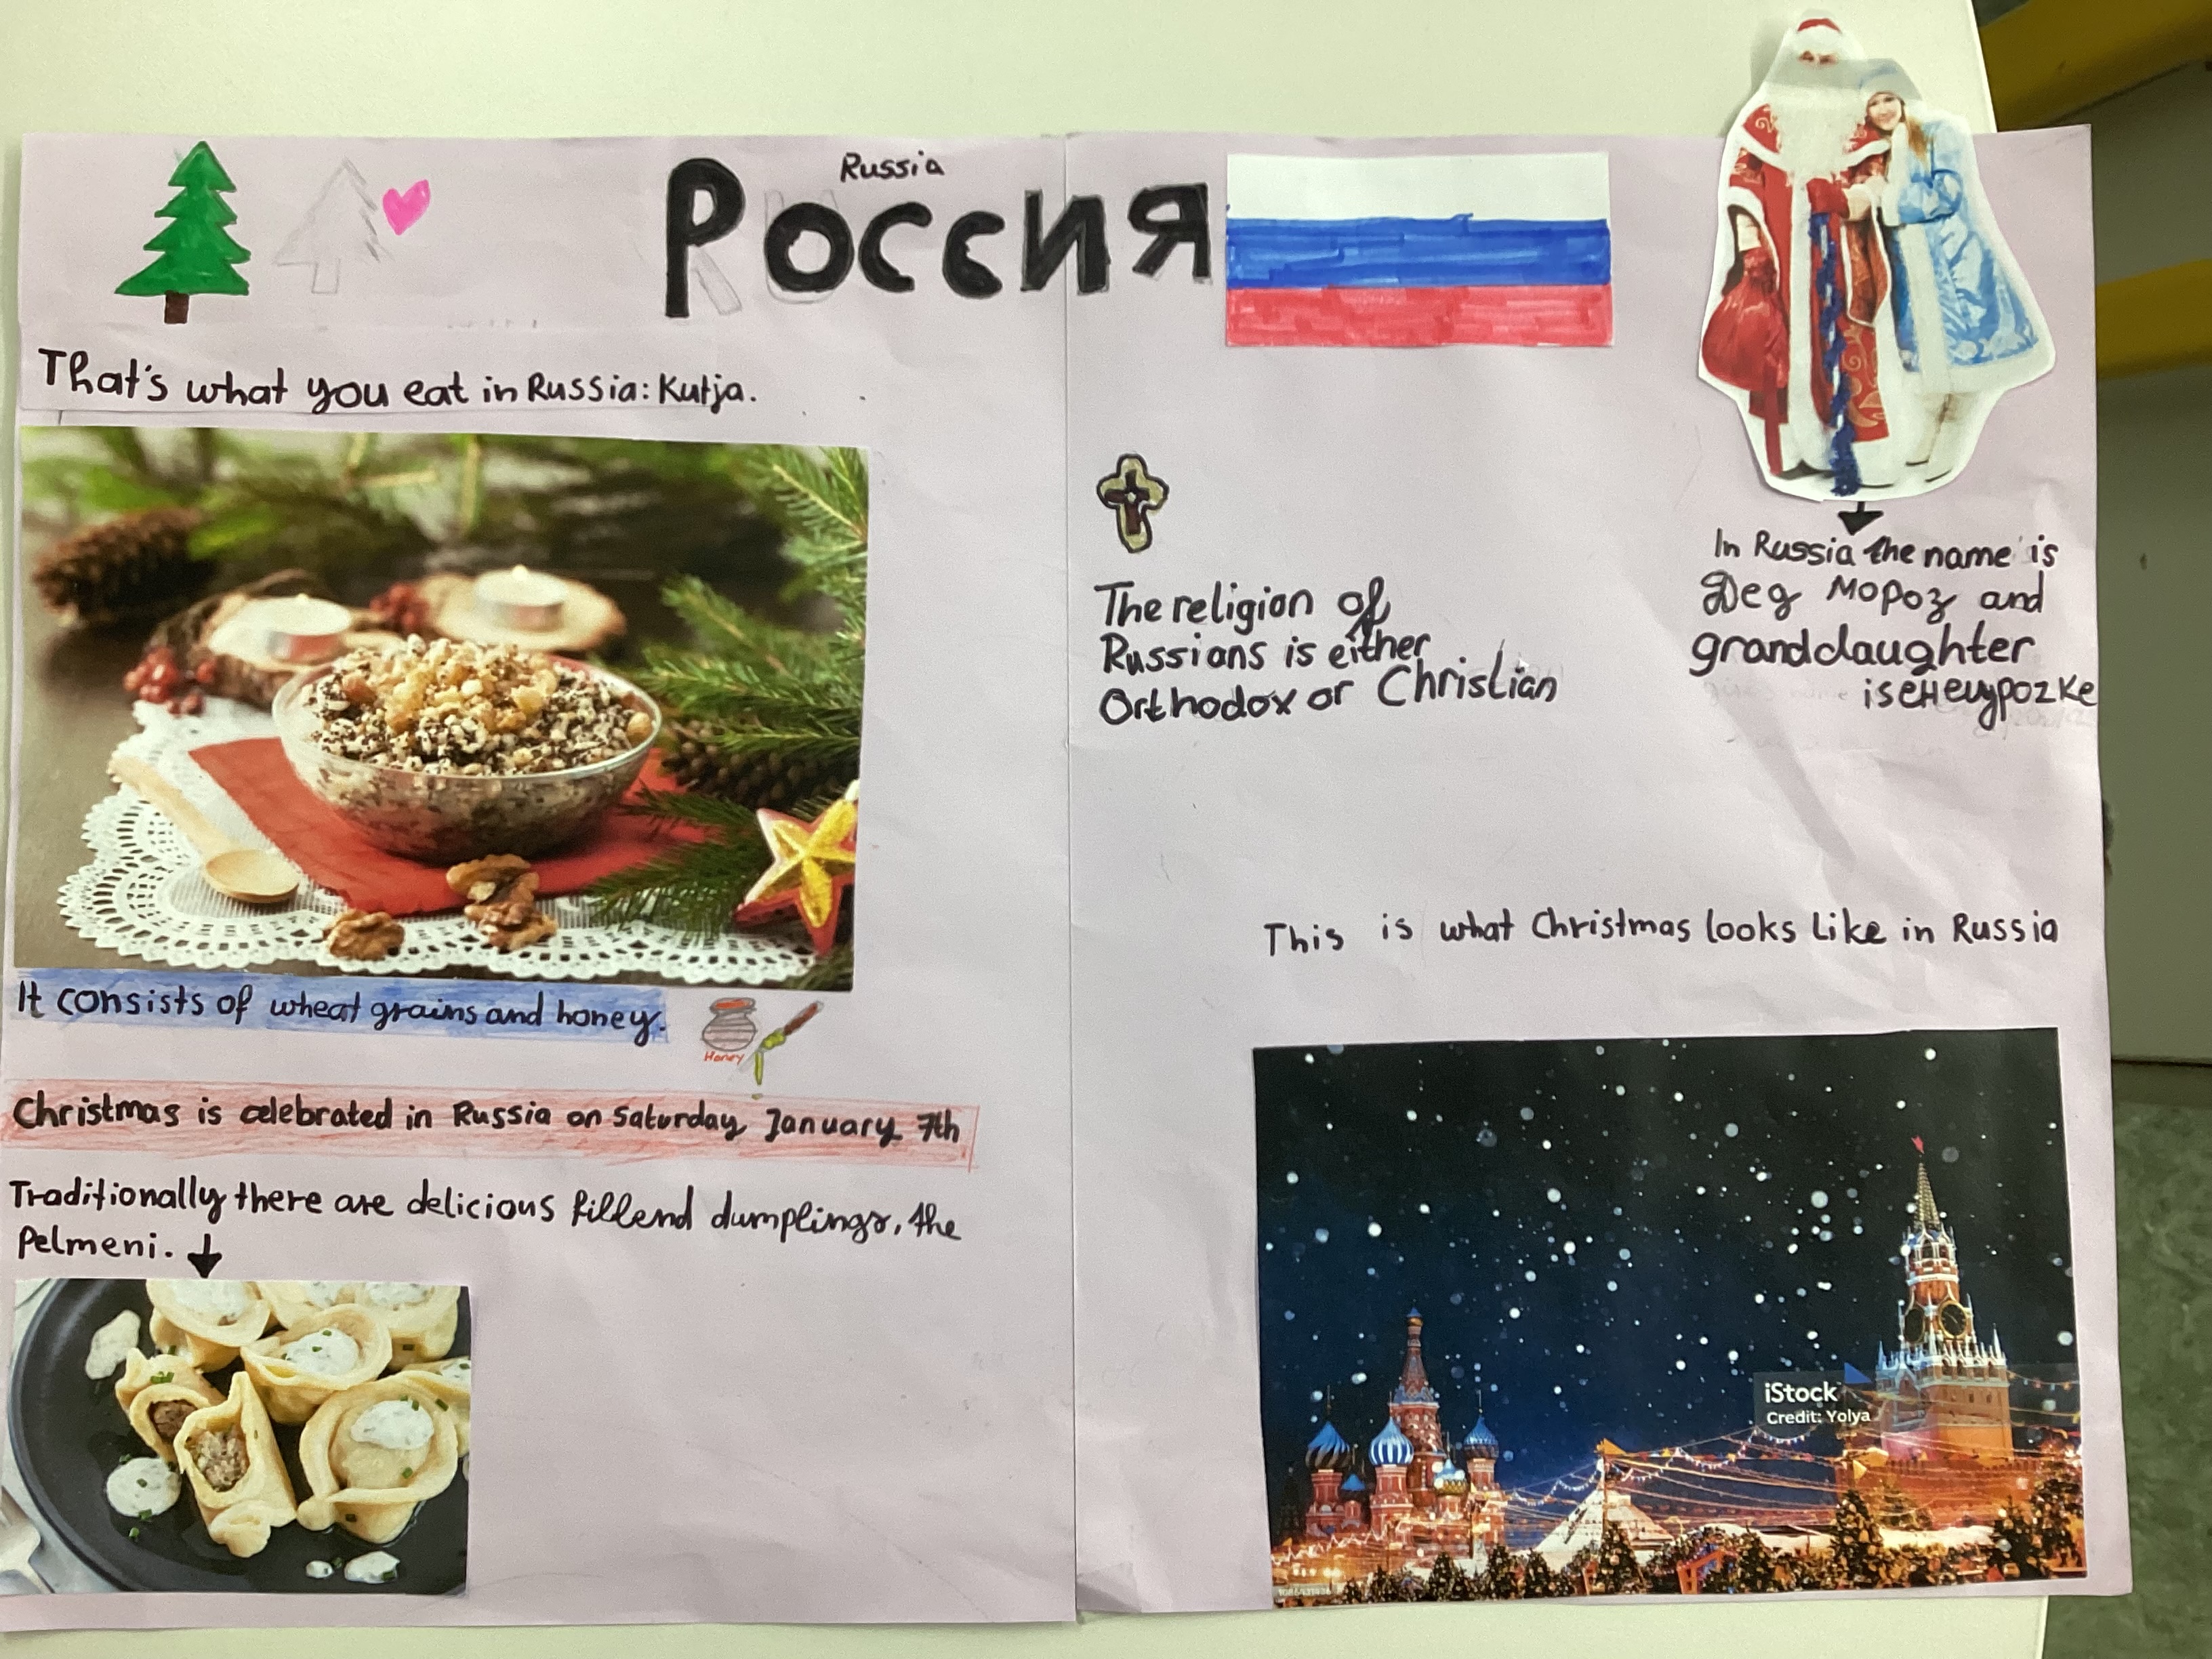 Russia
Россия
That's what you eat in Russia: Kutja.
It consists of wheat grains and honey.
Honey
Christmas is celebrated in Russia on Saturday January 7th
Traditionally there are delicious fillend dumplings, the
Pelmeni.
The religion of
Russians is either
Orthodox or Christian
In Russia the name is
Дед мороз and
granddaughter
is
This is what Christmas looks Like in Russia
iStock
Credit: Yolya